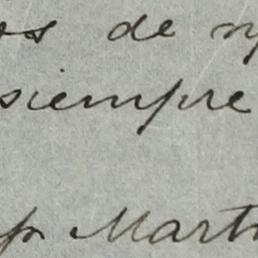 os de
siempre
Mart